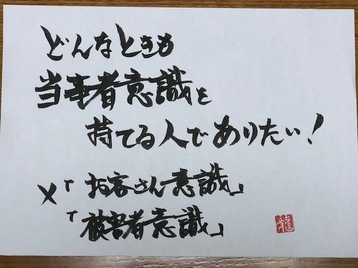 どんなときも
当事者意識を
持てる人でありたい!
×「お客さん意識」
「被害者意識」